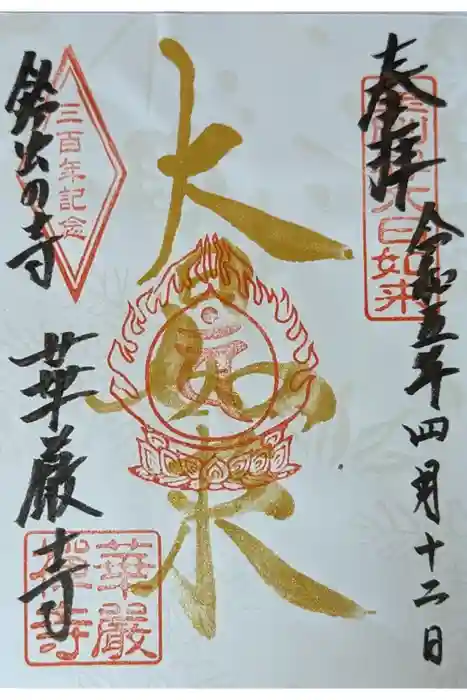 奉拝
令和五年四月十二日
大日如来
大日如来
三百年記念
鈴虫の寺
華厳寺
華嚴
禅寺